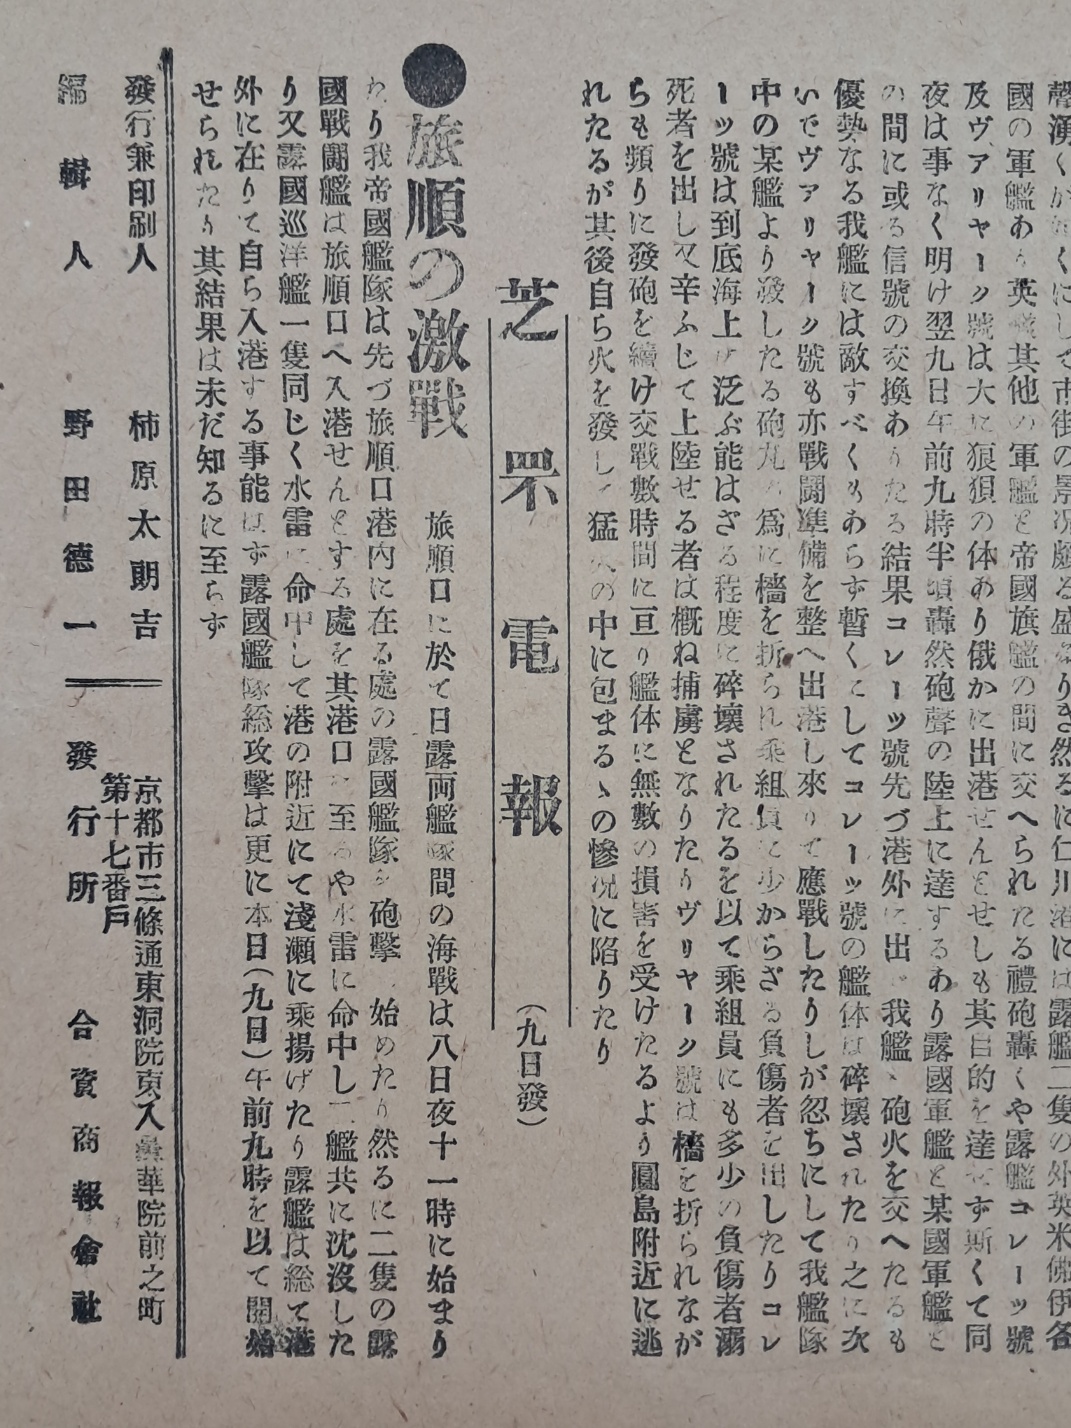 聲湧くが如くにして市街の景況頗る盛なりき然るに仁川港には露艦二隻の外英米佛伊各
國の軍艦あり英艦其他の軍艦と帝國旗艦の間に交へられたる禮砲轟くや露艦コレーッ號
及ヴァリヤーク號は大に狼狽の体あり俄かに出港せんとせしも其目的を達せず斯くて同
夜は事なく明け翌九日午前九時半頃轟然砲聲の陸上に達するあり露國軍艦と某國軍艦と
の間に或る信號の交換ありたる結果コレーッ號先づ港外に出で我艦と砲火を交へたるも
優勢なる我艦には敵すべくもあらず暫くにしてコレーッ號の艦体は碎壞されたり之に次
いでヴァリヤーク號も亦戰鬪準備を整へ出港し來りて應戰したりしが忽ちにして我艦隊
中の某艦より發したる砲丸の爲に檣を折られ乘組員に少からざる負傷者を出したりコレ
ーッ號は到底海上に泛ぶ能はざる程度に碎壞されたるを以て乘組員にも多少の負傷者溺
死者を出し又辛ふじて上陸せる者は概ね捕虜となりたりヴリヤーク號は檣を折られなが
らも頻りに發砲を續け交戰數時間に亘り艦体に無數の損害を受けたるより圓島附近に逃
れたるが其後自ら火を發して猛火の中に包まるゝの慘況に陷りたり
芝罘電報 (九日發)
●旅順の激戰 旅順口に於て日露両艦隊間の海戰は八日夜十一時に始まり
たり我帝國艦隊は先づ旅順口港内に在る處の露國艦隊を砲擊し始めたり然るに二隻の露
國戰鬪艦は旅順口へ入港せんとする處を其港口に至るや水雷に命中し二艦共に沈沒した
り又露國巡洋艦一隻同じく水雷に命中して港の附近にて淺瀬に乘揚げたり露艦は総て港
外に在りて自ら入港する事能はず露國艦隊総攻擊は更に本日(九日)午前九時を以て開始
せられたり其結果は未だ知るに至らず
發行兼印刷人 柿原太朗吉
編輯人 野田德一
京都市三條通東洞院東入曇華院前之町
第十七番戶
發行所 合資商報會社